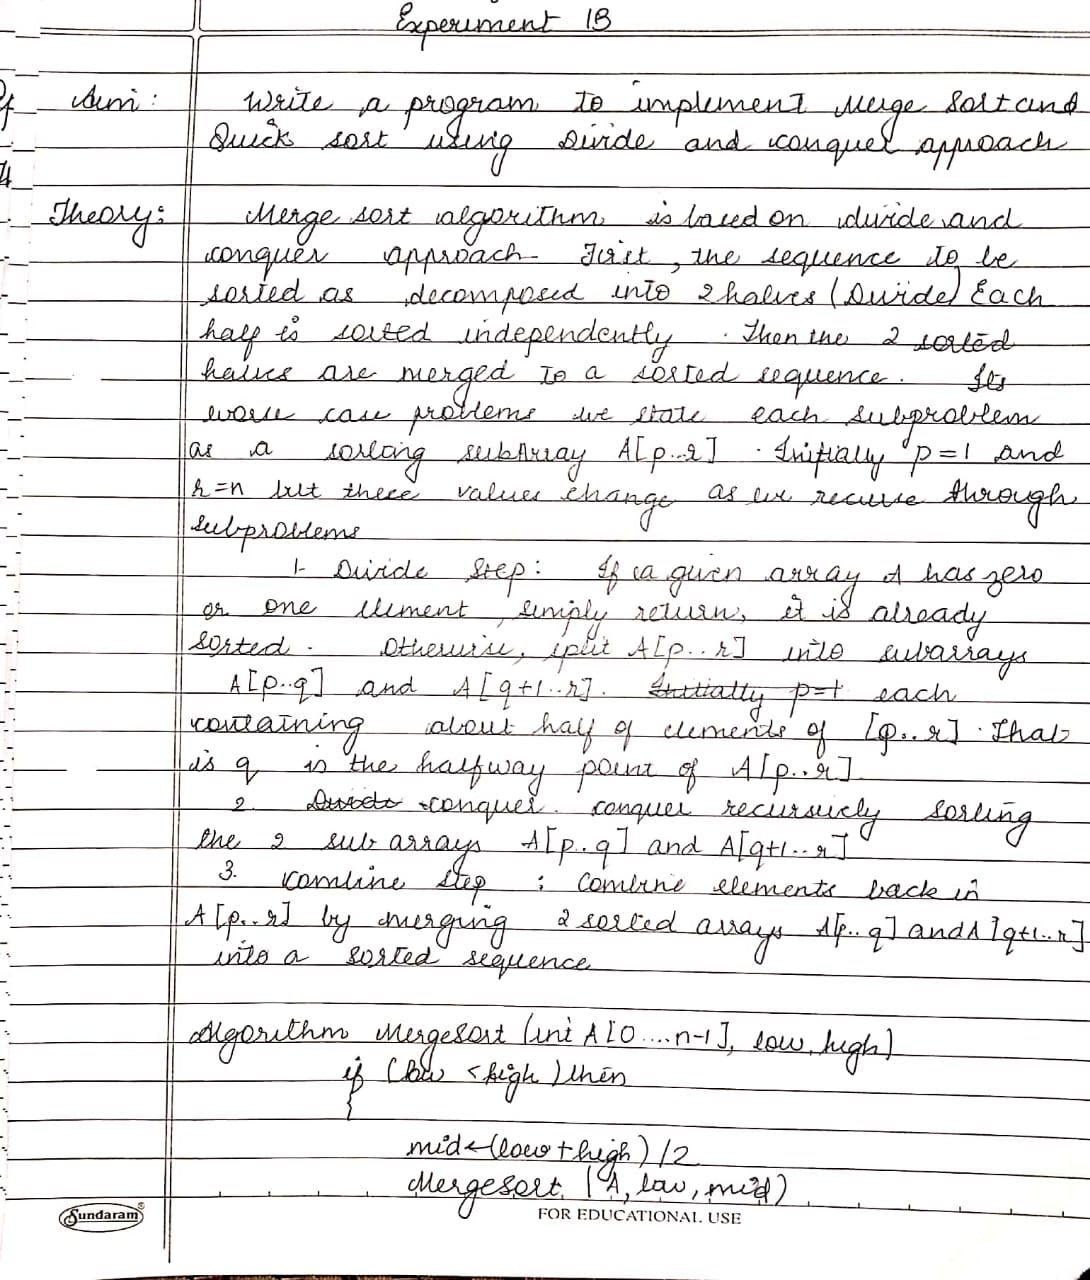 Experiment 1B
Aim: Write a program to implement Merge Sort and
Quick sort using Divide and conquer approach
Theory: Merge sort algorithm is based on divide and
conquer approach. First, the sequence to be
sorted as decomposed into 2 halves (Divide) Each
half is sorted independently. Then the 2 sorted
halves are merged to a sorted sequence. Its
worse case problems we state each subproblem
as a sorting subArray A[p..r]. Initially p=1 and
r=n but these values change as we recurse through
subproblems
1. Divide Step: If a given array A has zero
or one element, simply return, it is already
sorted. Otherwise, split A[p..r] into subarrays
A[p..q] and A[q+1..r]. Initially p=1 each
containing about half of elements of [p..r]. That
is q is the halfway point of A[p..r]
2. conquer. conquer recursively sorting
the 2 sub arrays A[p..q] and A[q+1..r]
3. Combine step : Combine elements back in
A[p..r] by merging 2 sorted arrays A[p..q] and A[q+1..r]
into a sorted sequence
Algorithm MergeSort (int A[0....n-1], low, high)
if (low < high) then
{
mid←(low+high)/2
Mergesort (A, low, mid)
Sundaram®
FOR EDUCATIONAL USE